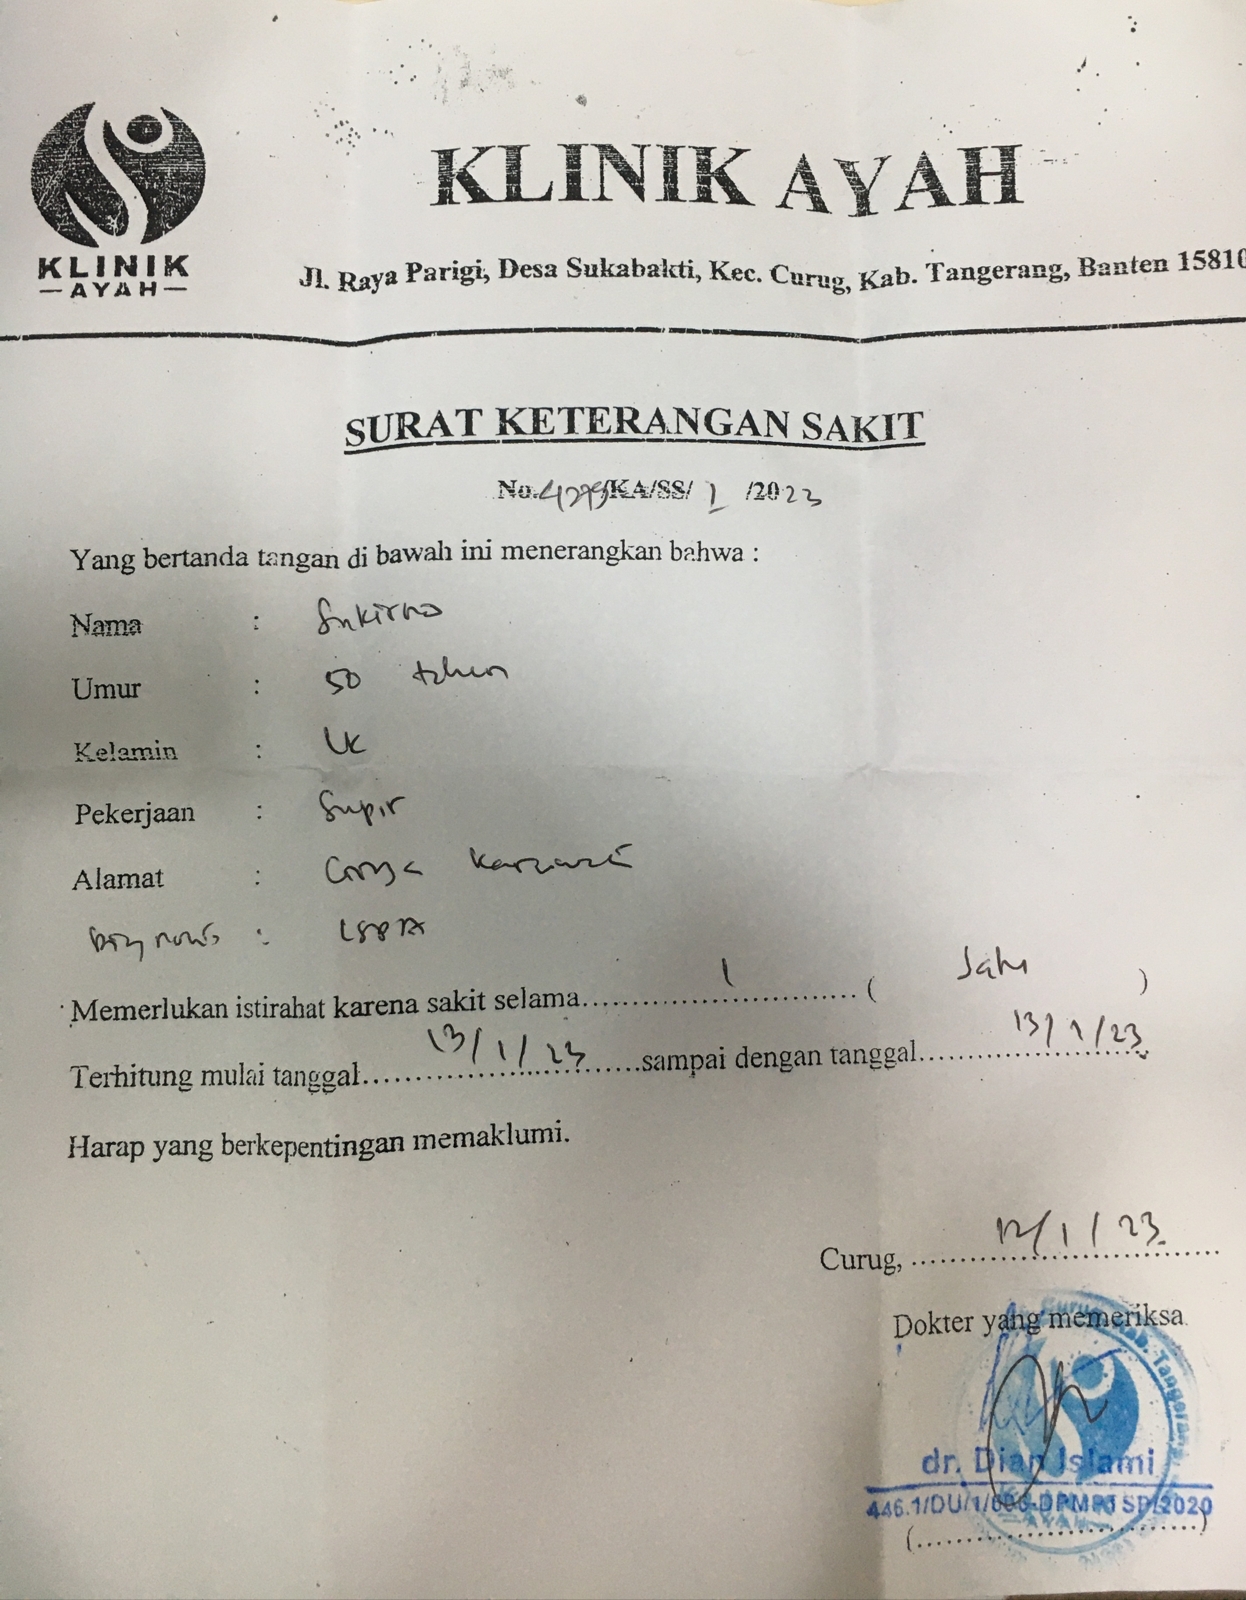 KLINIK AYAH
KLINIK
AYAH
Jl. Raya Parigi, Desa Sukabakti, Kec. Curug, Kab. Tangerang, Banten 15810
SURAT KETERANGAN SAKIT
No. /KA/SS/ I /2023
Yang bertanda tangan di bawah ini menerangkan bahwa :
Nama : Sukirno
Umur : 50 tahun
Kelamin : Lk
Pekerjaan : Supir
Alamat :
:
Memerlukan istirahat karena sakit selama 1 ( Satu )
Terhitung mulai tanggal 13/1/23 sampai dengan tanggal 13/1/23
Harap yang berkepentingan memaklumi.
Curug, 12/1/23
Dokter yang memeriksa
dr. Dian Islami